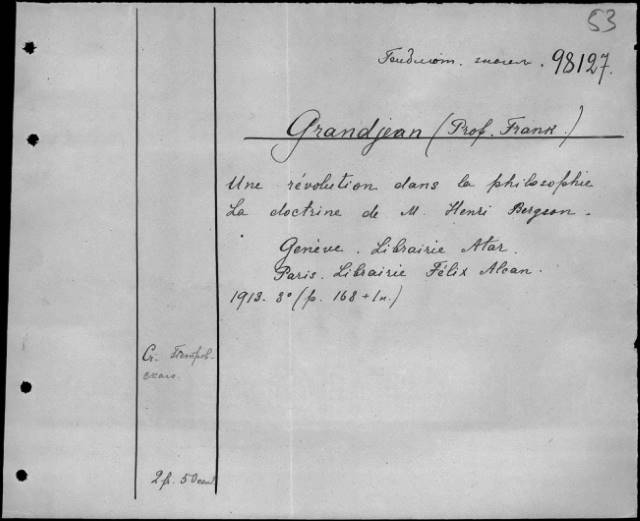 53
98127.
Grandjean (Prof. Frank.)
Une révolution dans la philosophie
La doctrine de M. Henri Bergson.
Genève. Librairie Atar.
Paris. Librairie Félix Alcan.
1913. 8° (p. 168 + 1n.)
2 fr. 50 cent